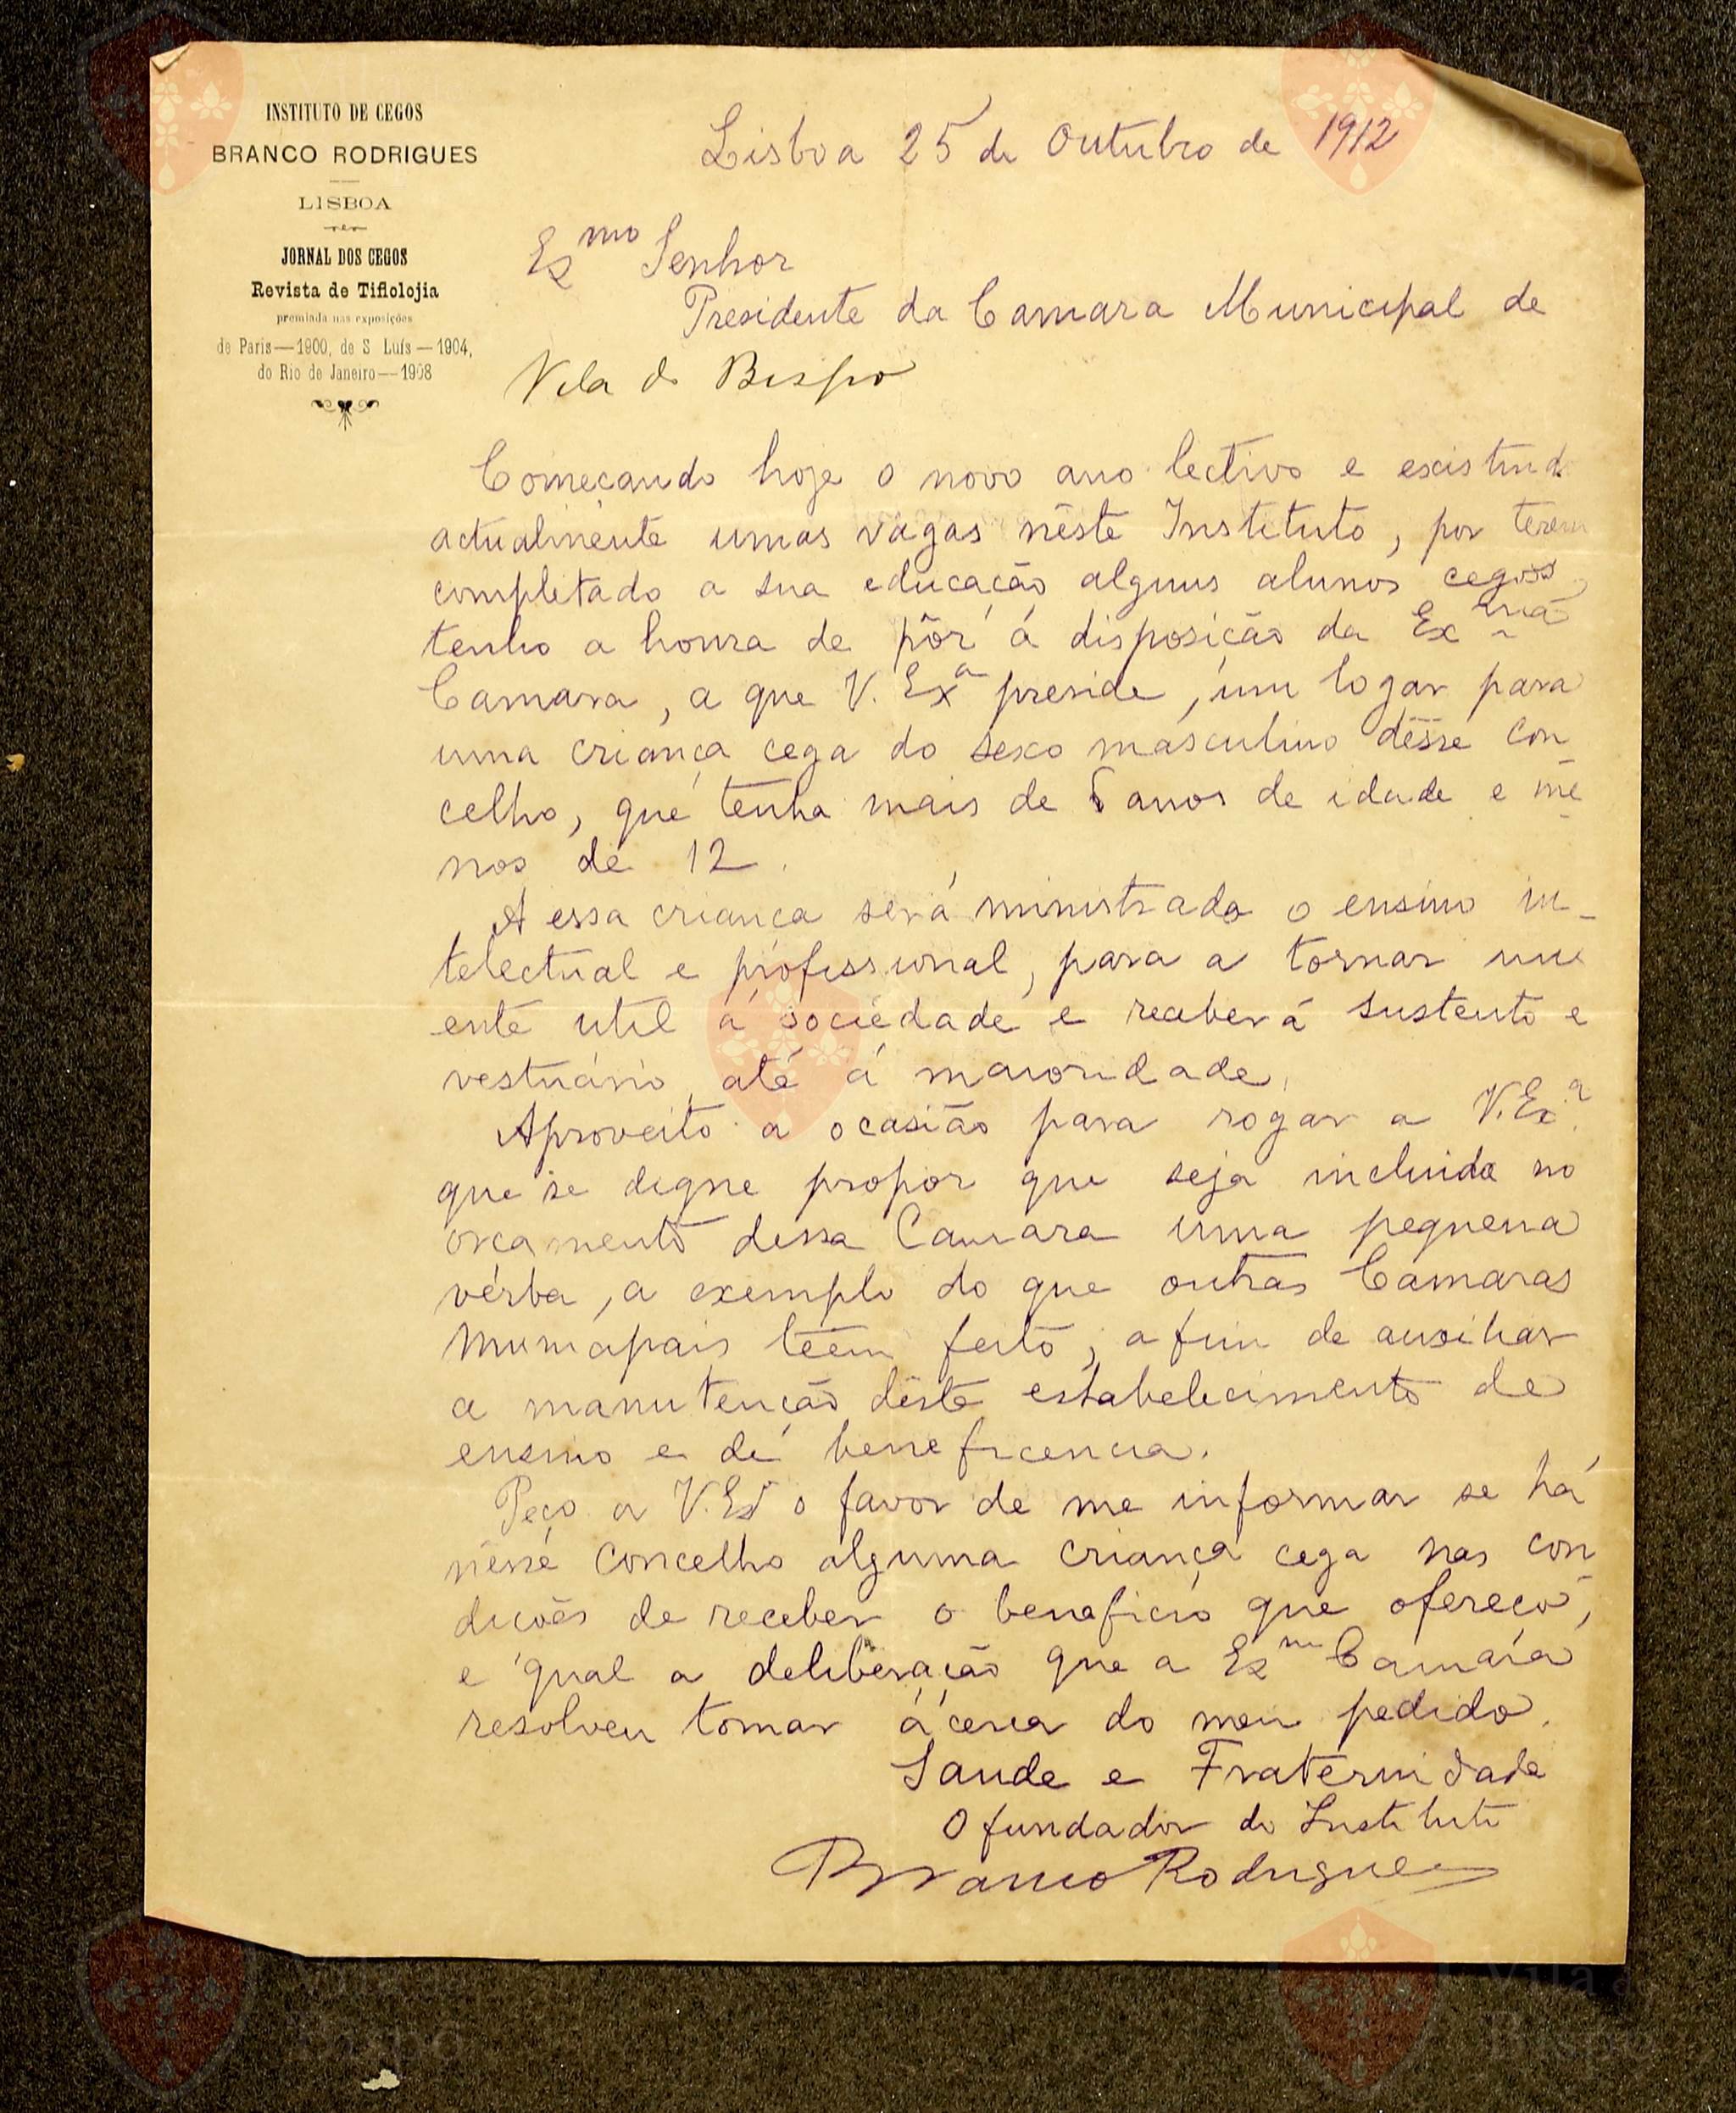 INSTITUTO DE CEGOS
BRANCO RODRIGUES
LISBOA
JORNAL DOS CEGOS
Revista de Tiflolojia
premiada nas exposições
de Paris—1900, de S Luís—1904,
do Rio de Janeiro—1908
Lisboa 25 de Outubro de 1912
Exmo Senhor
Presidente da Camara Municipal de
Vila do Bispo
Começando hoje o novo ano lectivo e existindo
actualmente umas vagas nêste Instituto, por terem
completado a sua educação alguns alunos cegos,
tenho a honra de pôr á disposição da Exma
Camara, a que V. Exa preside, um logar para
uma criança cega do sexo masculino dêsse con
celho, que tenha mais de anos de idade e me
nos de 12.
A essa criança será ministrado o ensino in-
telectual e profissional, para a tornar um
ente util á sociedade e receberá sustento e
vestuário até á maioridade.
Aproveito a ocasião para rogar a V. Exa.
que se digne propor que seja incluida no
orçamento dessa Camara uma pequena
vérba, a exemplo do que outras Camaras
Municipais teem feito, afim de auxiliar
a manutenção dêste estabelecimento de
ensino e de beneficencia.
Peço a V. Exa o favor de me informar se há
nêsse Concelho alguma criança cega nas con
dições de receber o beneficio que ofereço,
e qual a deliberação que a Exma Camara
resolveu tomar ácerca do meu pedido.
Saude e Fraternidade
O fundador do Instituto
Branco Rodrigues
Vila do
Bispo